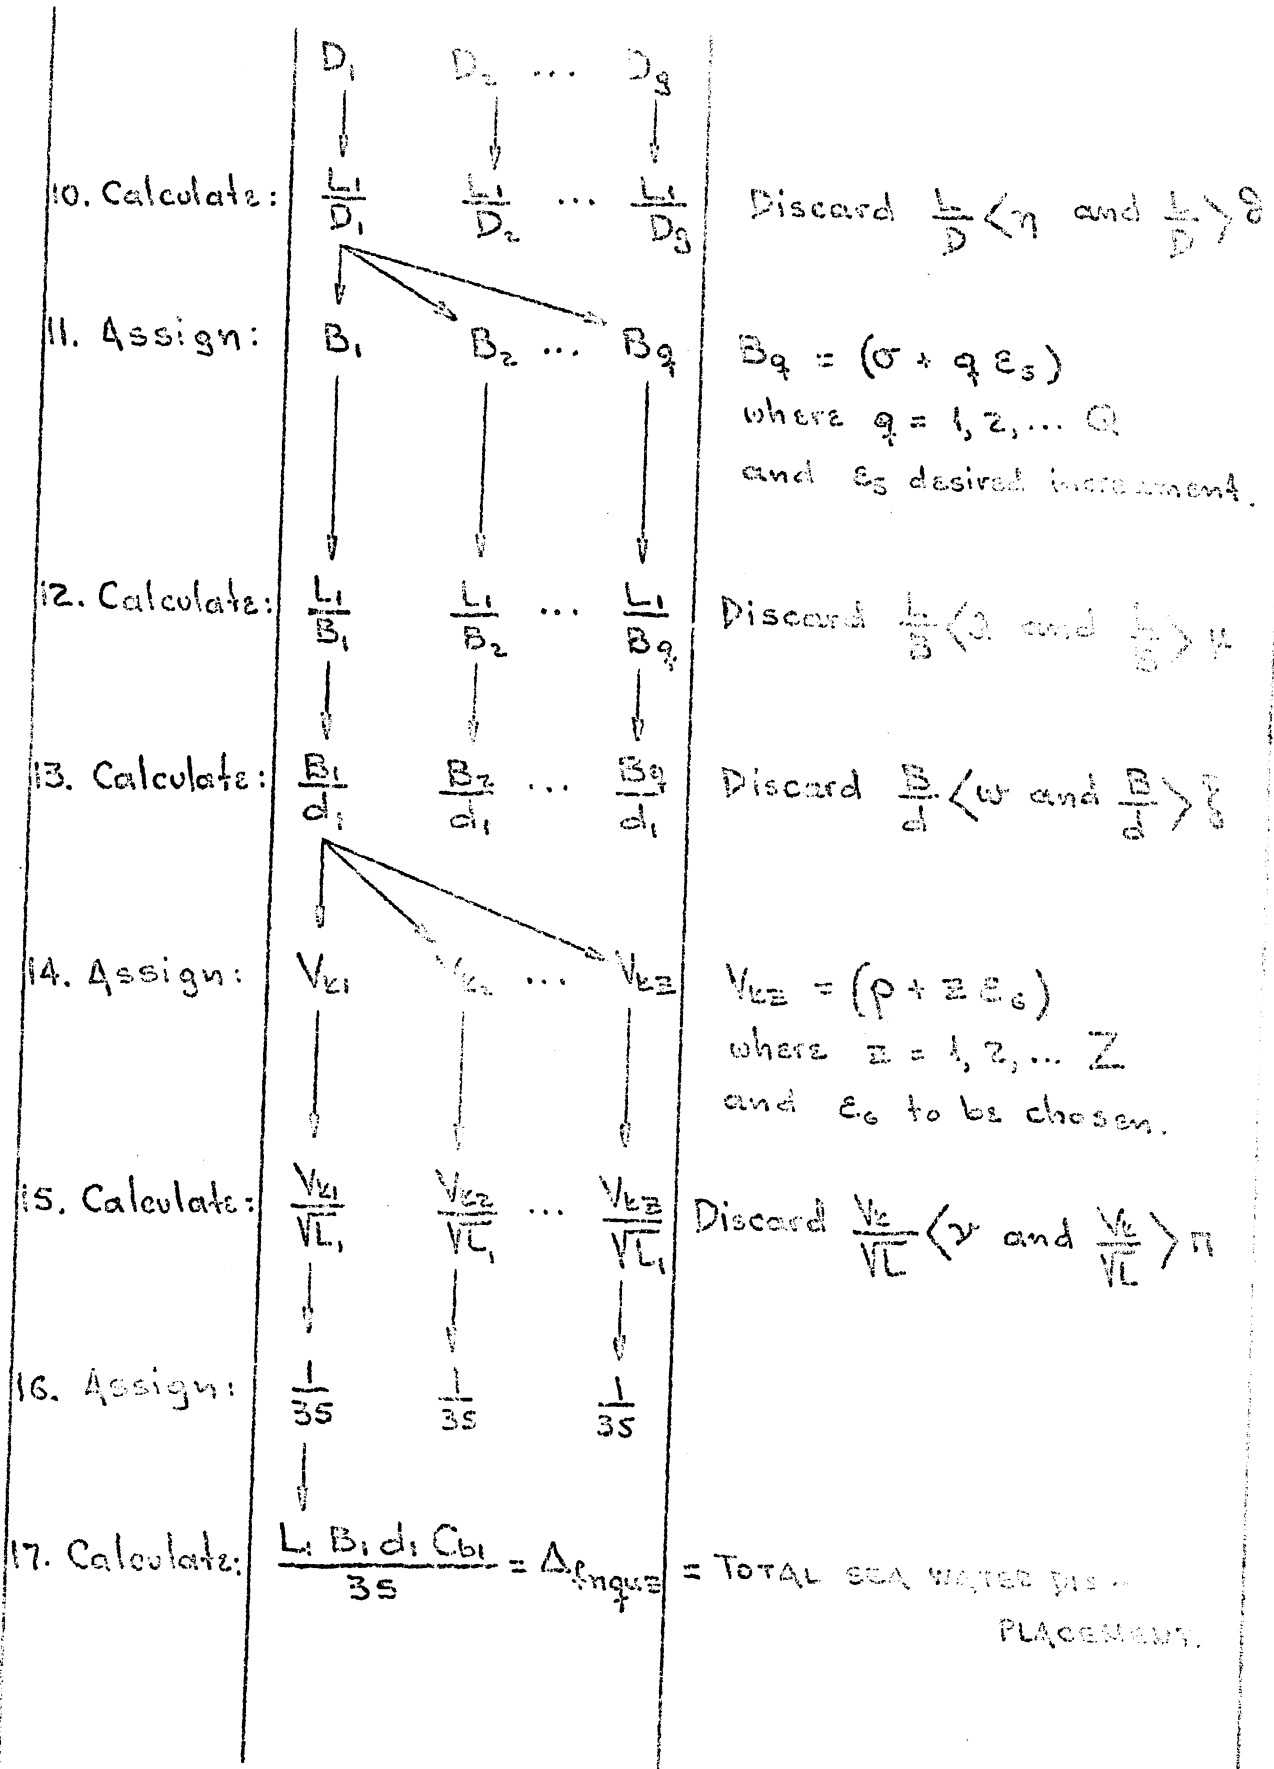 D₁ D₂ ... D_g
10. Calculate: L₁/D₁ L₁/D₂ ... L₁/D_g Discard L/D < η and L/D >
11. Assign: B₁ B₂ ... B_q B_q = (σ + q ε₅)
where q = 1, 2, ... Q
and ε₅ desired increament.
12. Calculate: L₁/B₁ L₁/B₂ ... L₁/B_q Discard L/B < and L/B > μ
13. Calculate: B₁/d₁ B₂/d₁ ... B_q/d₁ Discard B/d < w and B/d > ξ
14. Assign: V_k₁ V_k₂ ... V_kz V_kz = (ρ + z ε₆)
where z = 1, 2, ... Z
and ε₆ to be chosen.
15. Calculate: V_k₁/√L₁ V_k₂/√L₁ ... V_kz/√L₁ Discard V_k/√L < ν and V_k/√L > π
16. Assign: 1/35 1/35 1/35
17. Calculate: L₁ B₁ d₁ C_b₁/35 = Δ = TOTAL SEA WATER DIS-
PLACEMENT.